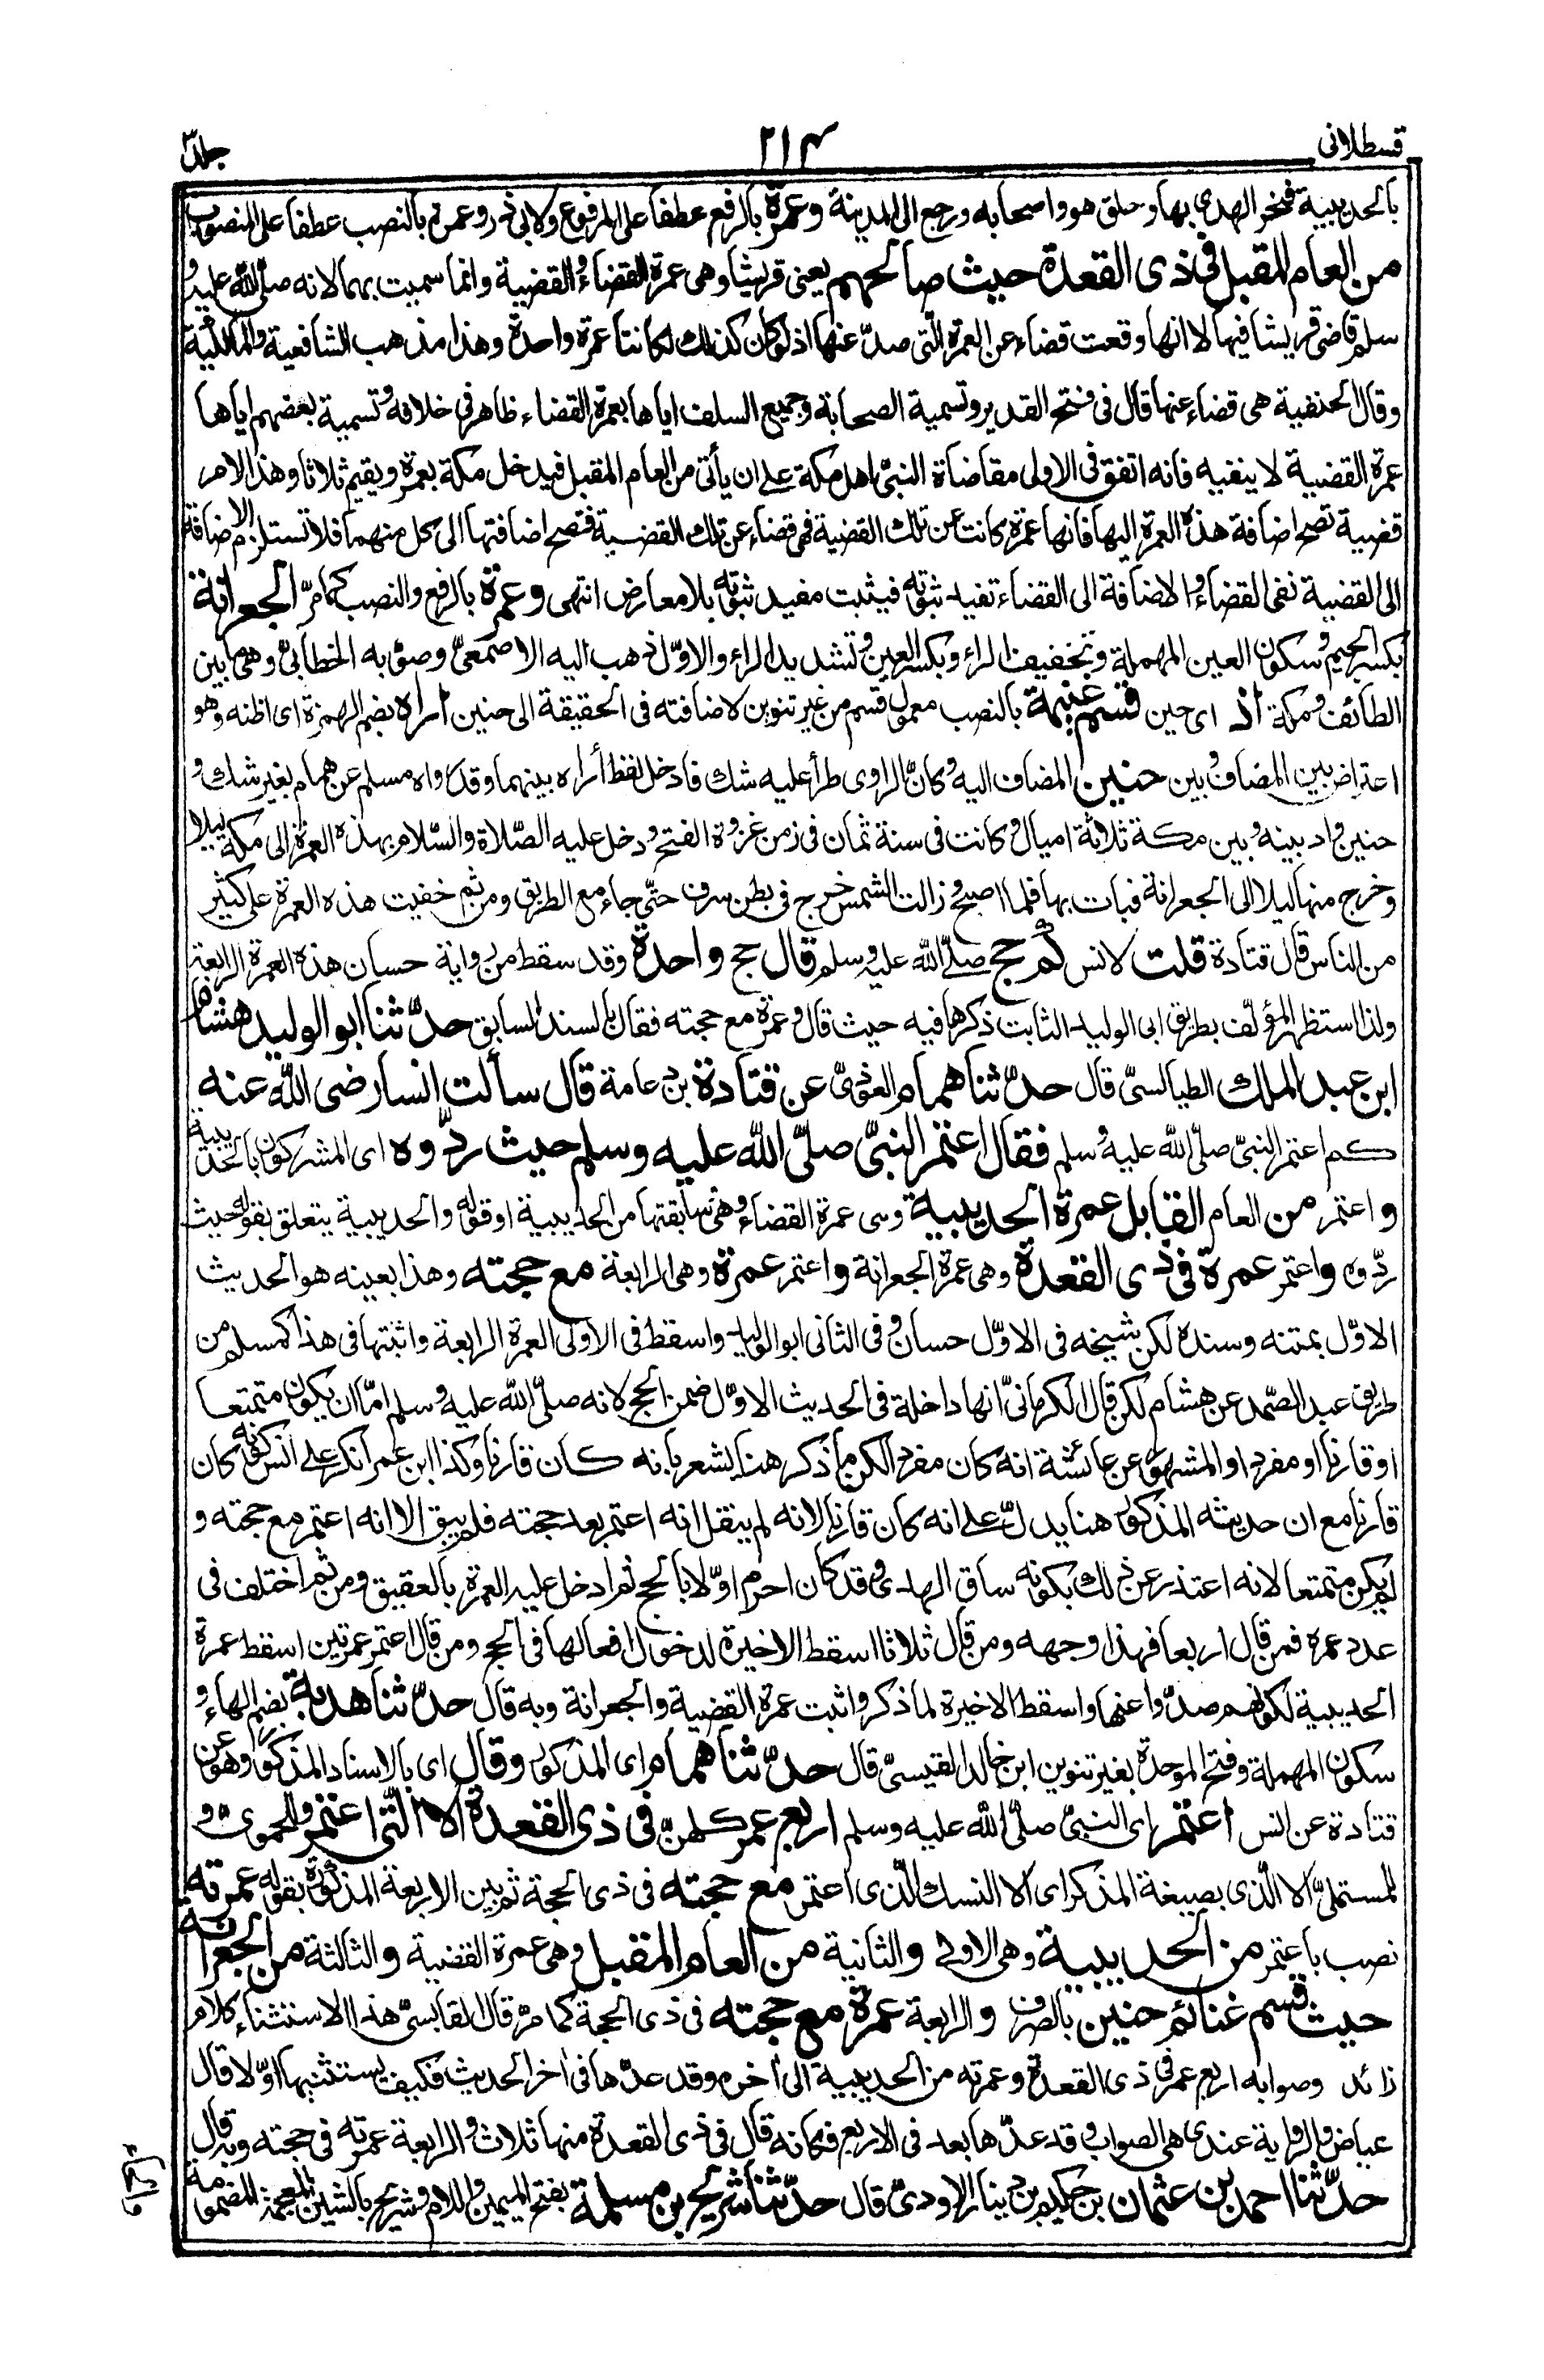 قسطلانی
٢١٤
جلد٣
بالحديبية فنحر الهدى بها وحلق هو واصحابه ورجع الى المدينة وعمرة بالرفع عطفا على المرفوع ولابى ذر وعمرة بالنصب عطفا على المنصوب
من العام المقبل فى ذى القعدة حيث صالحهم يعنى قريشا وهى عمرة القضاء والقضية وانما سميت بهما لانه صلى الله عليه و
سلم قاضى قريشا فيها لا انها وقعت قضاء عن العمرة التى صد عنها اذ لو كان كذلك لكانتا عمرة واحدة وهذا مذهب الشافعية والمالكية
وقال الحنفية هى قضاء عنها قال فى فتح القدير وتسمية الصحابة وجميع السلف اياها بعمرة القضاء ظاهر فى خلافه وتسمية بعضهم اياها
عمرة القضية لا ينفيه فانه اتفق فى الاولى مقاضاة النبى اهل مكة على ان يأتى من العام المقبل فيدخل مكة بعمرة ويقيم ثلاثا وهذا الامر
قضية تصح اضافة هذه العمرة اليها فانها عمرة كانت عن تلك القضية فهى قضاء عن تلك القضية فتصح اضافتها الى كل منهما فلا تستلزم الاضافة
الى القضية نفى القضاء والاضافة الى القضاء تفيد ثبوته فيثبت مفيد ثبوته بلا معارض انتهى وعمرة بالرفع والنصب كما مرّ الجعرانة
بكسر الجيم وسكون العين المهملة وتخفيف الراء وبكسر العين وتشديد الراء والاوّل ذهب اليه الاصمعىّ وصوّبه الخطابىّ وهى ما بين
الطائف ومكة اذ اى حين قسم غنيمة بالنصب معمول قسم من غير تنوين لاضافته فى الحقيقة الى حنين اُراه بضم الهمزة اى اظنه وهو
اعتراض بين المضاف وبين حنين المضاف اليه وكانّ الراوى طرأ عليه شك فادخل لفظ أراه بينهما وقد رواه مسلم عن همام بغير شك و
حنين واد بينه وبين مكة ثلاثة اميال وكانت فى سنة ثمان فى زمن غزوة الفتح ودخل عليه الصّلاة والسّلام بهذه العمرة الى مكة ليلا
وخرج منها ليلا الى الجعرانة فبات بها فلما اصبح وزالت الشمس خرج فى بطن سرف حتّى جاء مع الطريق ومن ثم خفيت هذه العمرة على كثير
من الناس قال قتادة قلت لانس كم حج صلّى الله عليه وسلم قال حج واحدة وقد سقط من رواية حسان هذه العمرة الرابعة
ولذا استظهر المؤلّف بطريق ابى الوليد الثابت ذكرها فيه حيث قال وعمرة مع حجته فقال بالسند السابق حدّثنا ابو الوليد هشام
ابن عبد الملك الطيالسىّ قال حدّثنا همام العوذىّ عن قتادة بن دعامة قال سألت انسا رضى الله عنه
كم اعتمر النبىّ صلّى الله عليه وسلم فقال اعتمر النبىّ صلّى الله عليه وسلم حيث ردّوه اى المشركون بالحديبية
واعتمر من العام القابل عمرة الحديبية وهى عمرة القضاء وهى سابقتها من الحديبية او قوله والحديبية يتعلق بقوله حيث
ردّوه واعتمر عمرة فى ذى القعدة وهى عمرة الجعرانة واعتمر عمرة وهى الرابعة مع حجته وهذا بعينه هو الحديث
الاوّل بمتنه وسنده لكن شيخه فى الاوّل حسان وفى الثانى ابو الوليد واسقط فى الاولى العمرة الرابعة واثبتها فى هذا كمسلم من
طريق عبد الصّمد عن هشام لكن قال الكرمانىّ انها داخلة فى الحديث الاوّل ضمن الحج لانه صلّى الله عليه وسلم امّا ان يكون متمتعا
او قارنا او مفردا والمشهور عن عائشة انه كان مفردا لكن ما ذكر هنا يشعر بانه كان قارنا وكذا ابن عمر انكر على انس كونه كان
قارنا مع ان حديثه المذكور هنا يدلّ على انه كان قارنا لانه لم ينقل انه اعتمر بعد حجته فلم يبق الا انه اعتمر مع حجته و
لم يكن متمتعا لانه اعتذر عن ذلك بكونه ساق الهدى وقد كان احرم اوّلا بالحج ثم ادخل عليه العمرة بالعقيق ومن ثم اختلف فى
عدد عمره فمن قال اربعا فهذا وجهه ومن قال ثلاثا اسقط الاخيرة لدخول افعالها فى الحج ومن قال اعتمر عمرتين اسقط عمرة
الحديبية لكونهم صدّوا عنها واسقط الاخيرة لما ذكر واثبت عمرة القضية والجعرانة وبه قال حدّثنا هدبة بضم الهاء و
سكون المهملة وفتح الموحدة بغير تنوين ابن خالد القيسىّ قال حدّثنا همام اى المذكور وقال اى بالاسناد المذكور وهو عن
قتادة عن انس اعتمر اى النبىّ صلّى الله عليه وسلم اربع عمر كلهنّ فى ذى القعدة الا الّتى اعتمر وللحموىّ و
المستملىّ الا الّذى بصيغة المذكر اى الا النسك الّذى اعتمر مع حجته فى ذى الحجة ثم بين الاربعة المذكورة بقوله عمرته
نصب باعتمر من الحديبية وهى الاولى والثانية من العام المقبل وهى عمرة القضية والثالثة من الجعرانة
حيث قسم غنائم حنين بالصرف والرابعة عمرة مع حجته فى ذى الحجة كما مرّ قال القابسىّ هذا الاستثناء كلام
زائد وصوابه اربع عمر فى ذى القعدة وعمرته من الحديبية الى آخره وقد عدّها فى آخر الحديث فكيف يستثنيها اوّلا قال
عياض والرواية عندى هى الصواب وقد عدّها بعد فى الاربع فكانه قال فى ذى القعدة منها ثلاث والرابعة عمرته فى حجته وبه قال
حدّثنا احمد بن عثمان بن حكيم بن دينار الاودىّ قال حدّثنا شريح بن مسلمة بفتح الميمين واللام وشريح بالشين المعجمة المضمومة